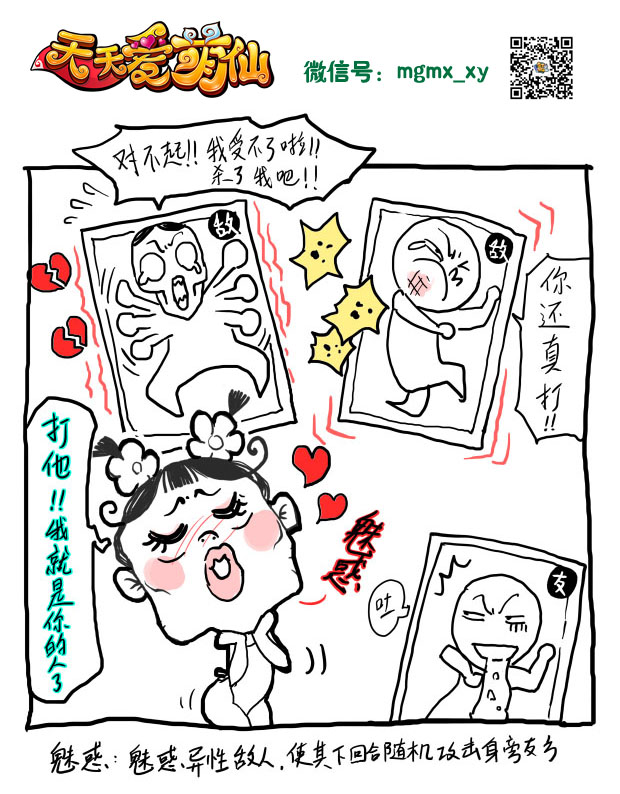 天天爱萌仙
微信号：mgmx_xy
对不起!! 我受不了啦!!
杀了我吧!!
敌
敌
你还真打!!
打他!!我就是你的人了
魅惑
友
吐
魅惑：魅惑异性敌人，使其下回合随机攻击身旁友方